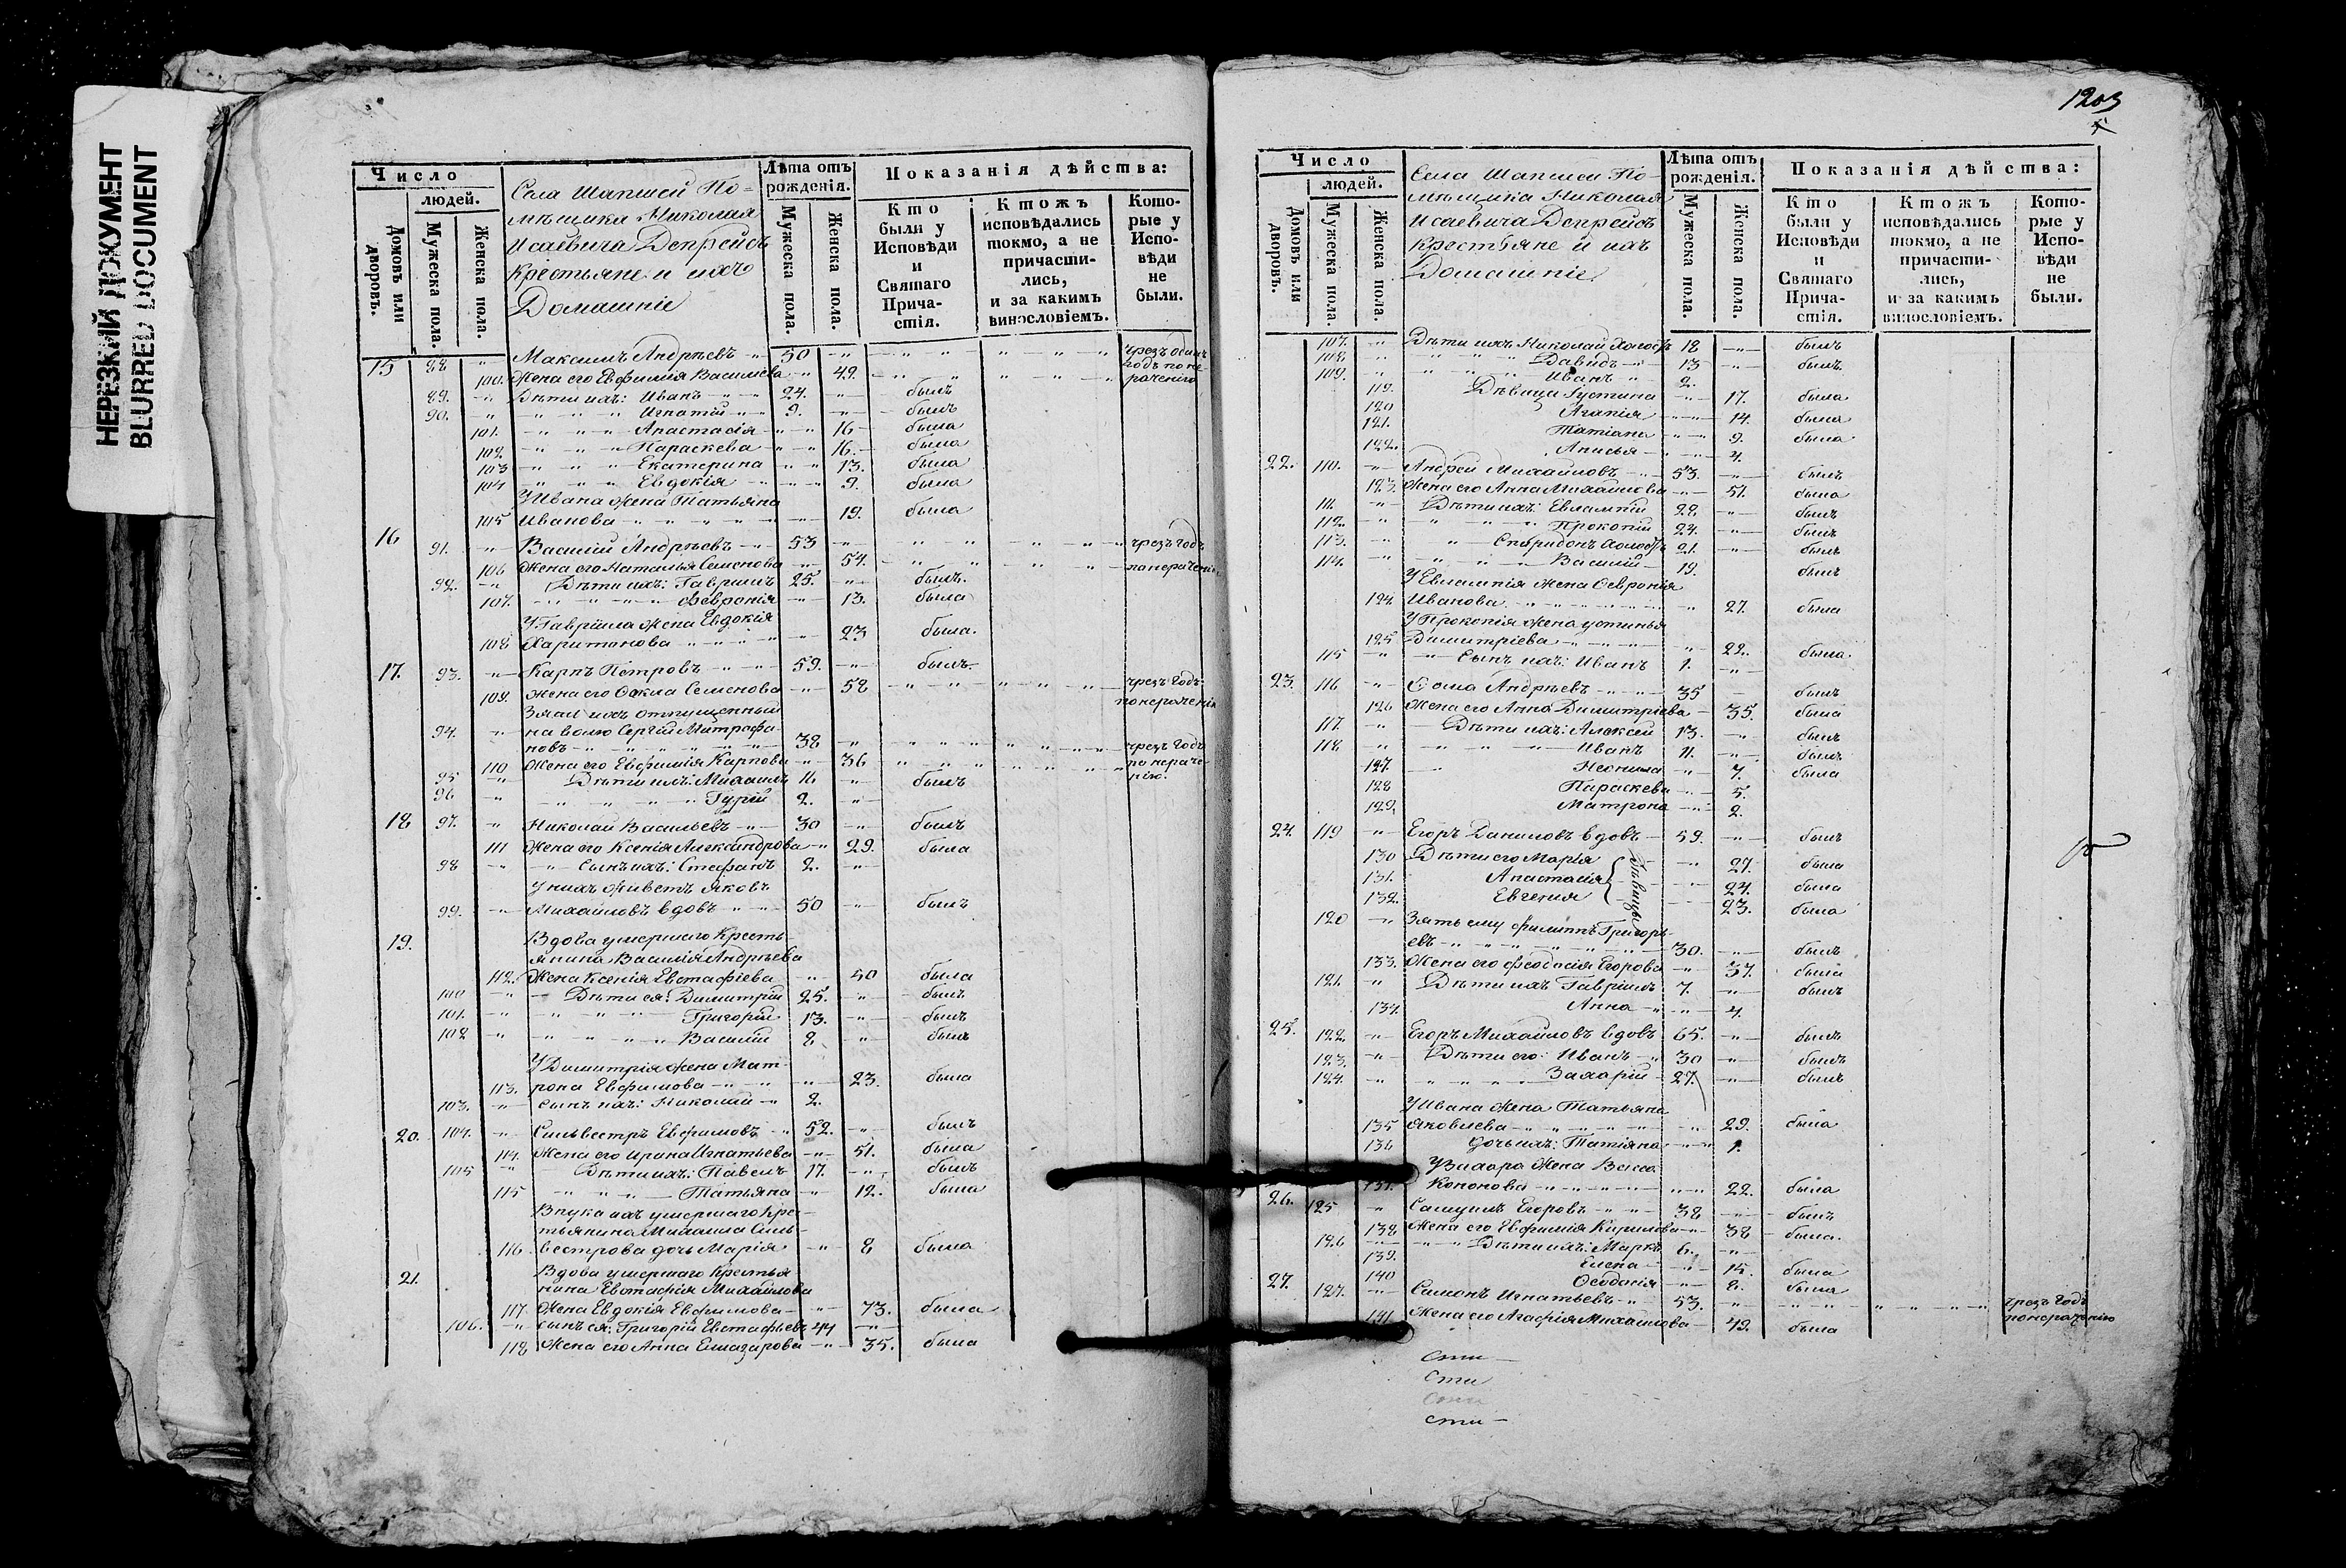 НЕРЕЗКИЙ ДОКУМЕНТ
BLURRED DOCUMENT
Число
людей.
Домовъ или дворовъ.
Мужеска пола.
Женска пола.
Села Шапшей По-
мѣщика Николая
Исаевича Депрейсъ
крестьяне и ихъ
Домашніе
Лѣта отъ рожденія.
Мужеска пола.
Женска пола.
Показанія дѣйства:
Кто были у Исповѣди и Святаго Прича- стія.
Ктожъ исповѣдались токмо, а не причасти- лись, и за какимъ винословіемъ.
Кото- рые у Испо- вѣди не были.
15 88 Максимъ Андрѣевъ 50 чрезъ одинъ
годъ по не-
100. Жена его Евфимия Васильева 49. рачению
89. Дѣти ихъ: Иванъ 24. былъ
90. Игнатій 9. былъ
101. Анастасія 16 была
102 Параскева 16. была
103 Екатерина 13. была
104 Евдокія 9. была
У Ивана жена Татьяна
105 Иванова 19. была
16 91. Василій Андрѣевъ 53 чрезъ годъ
106 Жена его Наталья Семенова 54. по нерачению
92. Дѣти ихъ: Гаврилъ 25. былъ.
107. Февронія 13. была
У Гавріила жена Евдокія
108 Харитонова 23 была.
17. 93. Карпъ Петровъ 59. былъ
109. Жена его Фекла Семенова 58 чрезъ годъ
по нерачению
Зять ихъ отпущенный
94. на волю Сергій Митрофа-
новъ 38 чрезъ годъ
110 Жена его Евфимія Карпова 36 по нераче-
нію.
95 Дѣти ихъ: Михаилъ 16 былъ
96 Гурій 2.
18 97. Николай Васильевъ 30 былъ
111 Жена его Ксенія Александрова 29. была
98 Сынъ ихъ: Стефанъ 2.
У нихъ живетъ Яковъ
99. Михайловъ вдовъ 50 былъ
19. Вдова умершаго Кресть-
янина Василія Андрѣева
112. Жена Ксенія Евстафіева 50 была
100 Дѣти ея: Димитрій 25. былъ
101. Григорій 13. былъ
102 Василій 8 былъ
У Димитрія жена Мат-
113. рона Евфимова 23. была
103. Сынъ ихъ: Николай 2.
20. 104. Сильвестръ Евфимовъ 52. былъ
114. Жена его Ирина Игнатьева 51. была
105 Дѣти ихъ: Павелъ 17. былъ
115 Татьяна 12. была
Внука ихъ умершаго Крес-
тьянина Михаила Силь-
116. вестрова дочь Марія 8 была
21. Вдова умершаго Крестья
нина Евстафія Михайлова
117. Жена Евдокія Евфимова 73. была
106. Сынъ ея: Григорій Евстафьевъ 44
118 Жена его Анна Елиазарова 35. была
1203
Число
людей.
Домовъ или дворовъ.
Мужеска пола.
Женска пола.
Села Шапшей По-
мѣщика Николая
Исаевича Депрейсъ
крестьяне и ихъ
Домашніе
Лѣта отъ рожденія.
Мужеска пола.
Женска пола.
Показанія дѣйства:
Кто были у Исповѣди и Святаго Прича- стія.
Ктожъ исповѣдались токмо, а не причасти- лись, и за какимъ винословіемъ.
Кото- рые у Испо- вѣди не были.
107. Дѣти ихъ Николай холостъ 18 былъ
108. Давидъ 13 былъ
109. Иванъ 2.
119. Дѣвица Іустина 17. была
120 Агапія 14. была
121. Татіана 9. была
122. Анисья 4.
22. 110. Андрей Михайловъ 53. былъ
123. Жена его Анна Михайлова 51. была
111. Дѣти ихъ: Евлампій 28. былъ
112. Прокопій 24. былъ
113. Спиридонъ холостъ 21. былъ
114. Василій 19. былъ
У Евлампія жена Февронія
124. Иванова 27. была
У Прокопія жена Устинья
125 Димитріева 22. была.
115 Сынъ ихъ: Иванъ 1.
23. 116 Фома Андрѣевъ 35 былъ
126 Жена его Анна Димитріева 35. была
117. Дѣти ихъ: Алексей 13. былъ
118. Иванъ 11. былъ
127. Неонила 7. была
128 Параскева 5.
129. Матрона 2.
24. 119 Егоръ Даниловъ вдовъ 59. былъ
130 Дѣти его Марія 27. была
131. Анастасія 24. была
132. Евгенія 23. была
дѣвицы
120 Зять ему Филиппъ Григорь-
евъ 30. былъ
133. Жена его Феодосія Егорова 37. была
121. Дѣти ихъ Гавріилъ 7. былъ
134. Анна 4.
25. 122. Егоръ Михайловъ вдовъ 65. былъ
123. Дѣти его: Иванъ 30 былъ
124. Захарій 27. былъ
У Ивана жена Татьяна
135 Яковлева 29. была
136 дочь ихъ: Татіяна 1.
У Захара жена Васса
137. Кононова 22. была
26. 125 Самуилъ Егоровъ 38 былъ
138 Жена его Евфимія Кирилова 38 была.
126 Дѣти ихъ: Маркъ 6.
139. Елена 15. была
140 Феодосія 8. была
27. 127. Самонъ Игнатьевъ 53. чрезъ годъ
по нерачению
141. Жена его Агафія Михайлова 49. была